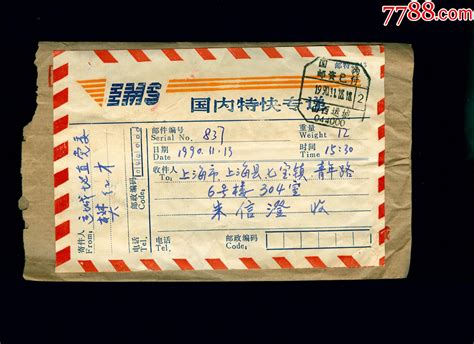 7788.com
EMS
国内特快专递
国 邮
邮资已付
1990.11.13.18
2
044000
邮件编号
Serial No. 837
重量
Weight 72
日期
Date 1990.11.13
时间
Time 15:30
收件人
To: 上海市上海县七宝镇青年路
6号楼304室
朱信澄 收
电话
Tel.
邮政编码
Code:
寄件人
From:
运城地直党委
电话
Tel.
邮政编码
Code: